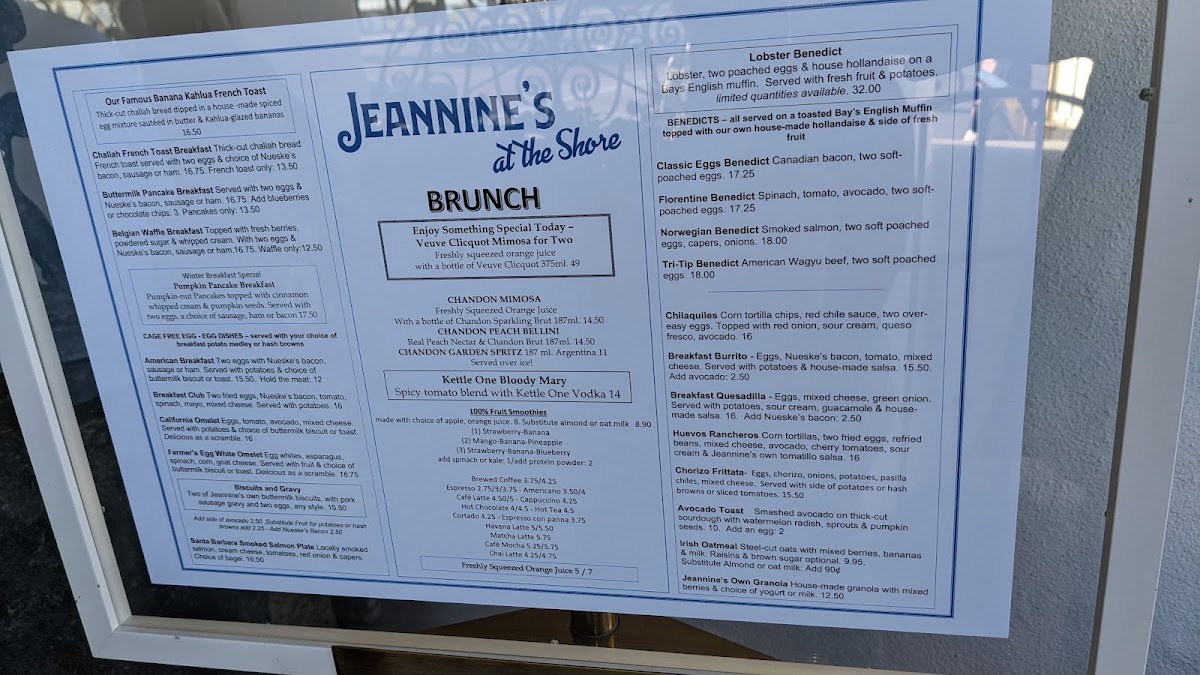 Our Famous Banana Kahlua French Toast
Thick-cut challah bread dipped in a house -made spiced
egg mixture sautéed in butter & Kahlua-glazed bananas
16.50
Challah French Toast Breakfast Thick-cut challah bread
French toast served with two eggs & choice of Nueske's
bacon, sausage or ham. 16.75. French toast only: 13.50
Buttermilk Pancake Breakfast Served with two eggs &
Nueske's bacon, sausage or ham. 16.75. Add blueberries
or chocolate chips: 3. Pancakes only: 13.50
Belgian Waffle Breakfast Topped with fresh berries,
powdered sugar & whipped cream. With two eggs &
Nueske's bacon, sausage or ham.16.75. Waffle only:12.50
Winter Breakfast Special
Pumpkin Pancake Breakfast
Pumpkin-nut Pancakes topped with cinnamon
whipped cream & pumpkin seeds. Served with
two eggs, a choice of sausage, ham or bacon 17.50
CAGE FREE EGG - EGG DISHES – served with your choice of
breakfast potato medley or hash browns
American Breakfast Two eggs with Nueske's bacon,
sausage or ham. Served with potatoes & choice of
buttermilk biscuit or toast. 15.50. Hold the meat: 12
Breakfast Club Two fried eggs, Nueske's bacon, tomato,
spinach, mayo, mixed cheese. Served with potatoes. 16
California Omelet Eggs, tomato, avocado, mixed cheese.
Served with potatoes & choice of buttermilk biscuit or toast.
Delicious as a scramble. 16
Farmer's Egg White Omelet Egg whites, asparagus,
spinach, corn, goat cheese. Served with fruit & choice of
buttermilk biscuit or toast. Delicious as a scramble. 16.75
Biscuits and Gravy
Two of Jeannine's own buttermilk biscuits, with pork
sausage gravy and two eggs, any style. 15.50
Add side of avocado 2.50 ,Substitute Fruit for potatoes or hash
browns add 2.25 - Add Nueske's Bacon 2.50
Santa Barbara Smoked Salmon Plate Locally smoked
salmon, cream cheese, tomatoes, red onion & capers.
Choice of bagel. 16.50
JEANNINE'S
at the Shore
BRUNCH
Enjoy Something Special Today –
Veuve Clicquot Mimosa for Two
Freshly squeezed orange juice
with a bottle of Veuve Clicquot 375ml. 49
CHANDON MIMOSA
Freshly Squeezed Orange Juice
With a bottle of Chandon Sparkling Brut 187ml. 14.50
CHANDON PEACH BELLINI
Real Peach Nectar & Chandon Brut 187ml. 14.50
CHANDON GARDEN SPRITZ 187 ml. Argentina 11
Served over ice!
Kettle One Bloody Mary
Spicy tomato blend with Kettle One Vodka 14
100% Fruit Smoothies
made with choice of apple, orange juice. 8. Substitute almond or oat milk 8.90
(1) Strawberry-Banana
(2) Mango-Banana-Pineapple
(3) Strawberry-Banana-Blueberry
add spinach or kale: 1/add protein powder: 2
Brewed Coffee 3.75/4.25
Espresso 2.75/3/3.75 - Americano 3.50/4
Café Latte 4.50/5 - Cappuccino 4.25
Hot Chocolate 4/4.5 - Hot Tea 4.5
Cortado 4.25 - Espresso con panna 3.75
Havana Latte 5/5.50
Matcha Latte 5.75
Café Mocha 5.25/5.75
Chai Latte 4.25/4.75
Freshly Squeezed Orange Juice 5 / 7
Lobster Benedict
Lobster, two poached eggs & house hollandaise on a
Bays English muffin. Served with fresh fruit & potatoes.
limited quantities available. 32.00
BENEDICTS – all served on a toasted Bay's English Muffin
topped with our own house-made hollandaise & side of fresh
fruit
Classic Eggs Benedict Canadian bacon, two soft-
poached eggs. 17.25
Florentine Benedict Spinach, tomato, avocado, two soft-
poached eggs. 17.25
Norwegian Benedict Smoked salmon, two soft poached
eggs, capers, onions. 18.00
Tri-Tip Benedict American Wagyu beef, two soft poached
eggs. 18.00
Chilaquiles Corn tortilla chips, red chile sauce, two over-
easy eggs. Topped with red onion, sour cream, queso
fresco, avocado. 16
Breakfast Burrito - Eggs, Nueske's bacon, tomato, mixed
cheese. Served with potatoes & house-made salsa. 15.50.
Add avocado: 2.50
Breakfast Quesadilla - Eggs, mixed cheese, green onion.
Served with potatoes, sour cream, guacamole & house-
made salsa. 16. Add Nueske's bacon: 2.50
Huevos Rancheros Corn tortillas, two fried eggs, refried
beans, mixed cheese, avocado, cherry tomatoes, sour
cream & Jeannine's own tomatillo salsa. 16
Chorizo Frittata- Eggs, chorizo, onions, potatoes, pasilla
chiles, mixed cheese. Served with side of potatoes or hash
browns or sliced tomatoes. 15.50
Avocado Toast Smashed avocado on thick-cut
sourdough with watermelon radish, sprouts & pumpkin
seeds. 10. Add an egg: 2
Irish Oatmeal Steel-cut oats with mixed berries, bananas
& milk. Raisins & brown sugar optional. 9.95.
Substitute Almond or oat milk; Add 90¢
Jeannine's Own Granola House-made granola with mixed
berries & choice of yogurt or milk. 12.50